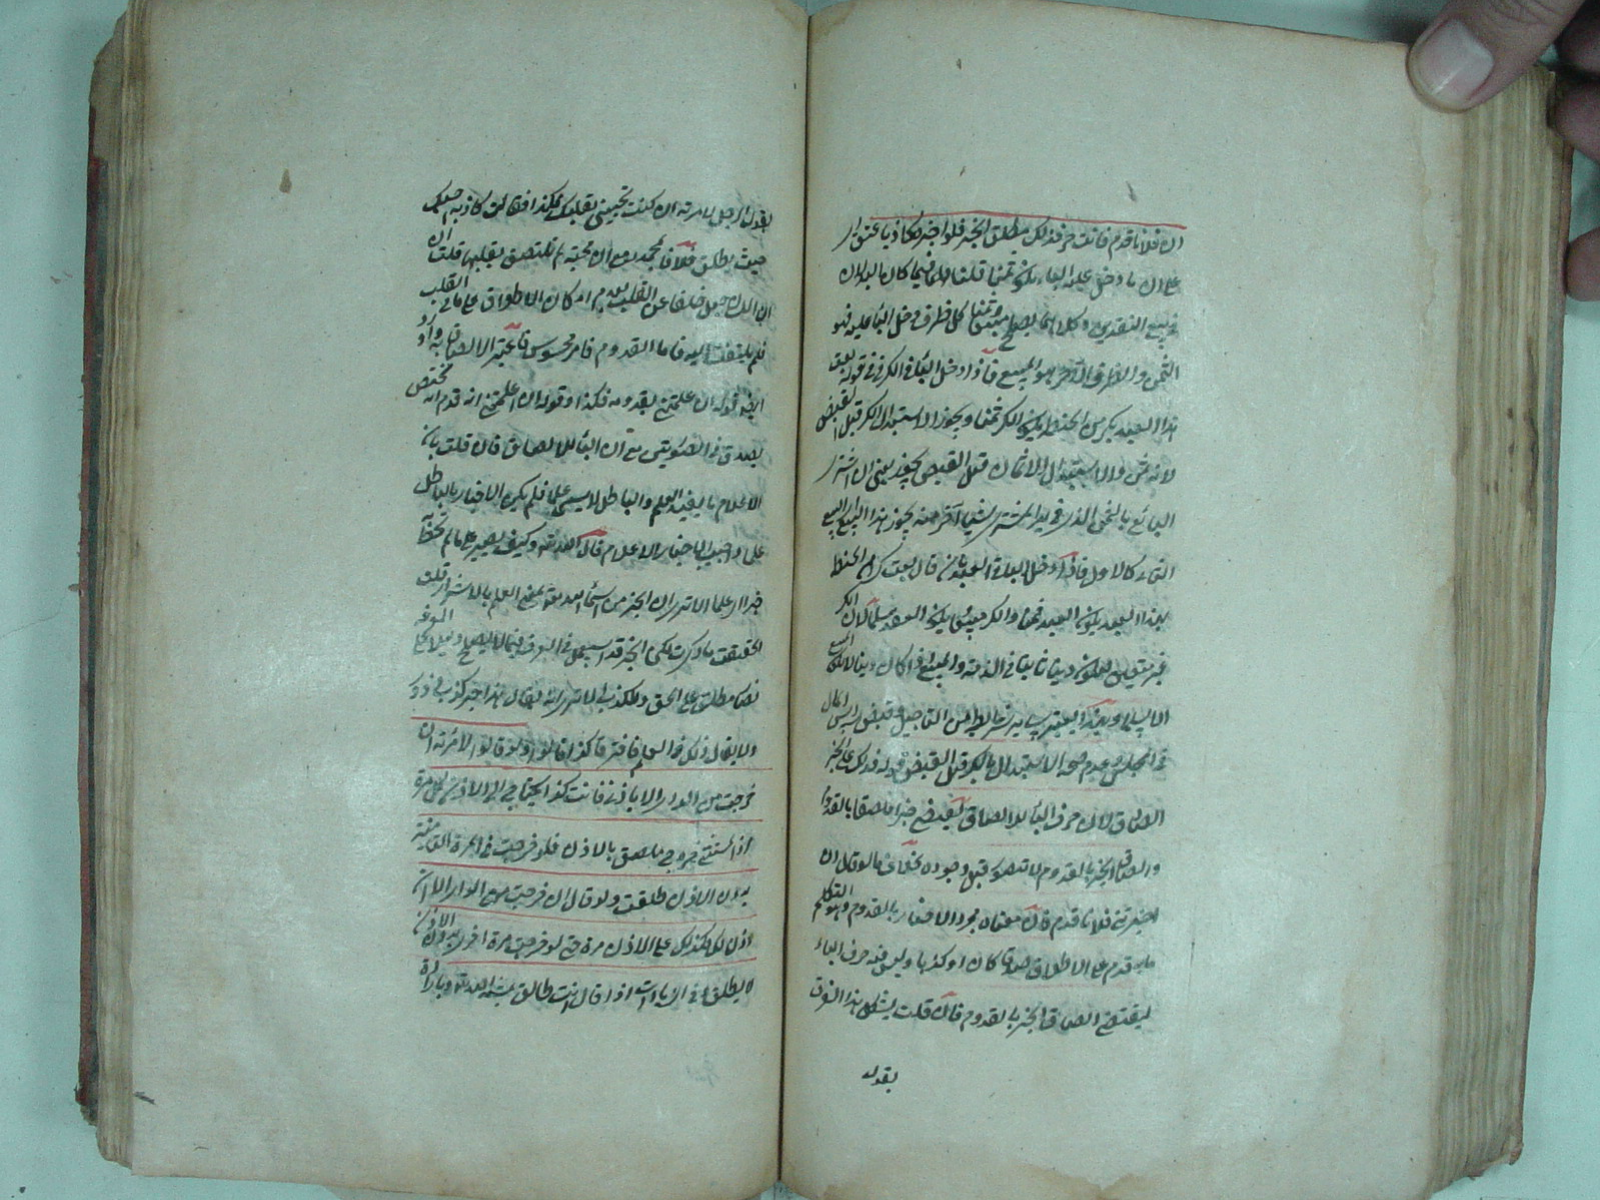 ان فلانا قدم فانت حر فذلك يطلق الخبر فلو اخبر كاذبا عتق
على ان ما دخل عليه الباء يكون ثمنا قلنا انما فيما كان
في بيع النقدين وكلاهما يصلح مبيعا وثمنا كل طرف دخل الباء عليه فهو
الثمن والطرف الآخر هو المبيع فاذا دخل الباء في الكر في قوله بعت
هذا العبد بكر من الحنطة يكون الكر ثمنا ويجوز الاستبدال الكر قبل القبض
لانه ثمن والاستبدال الاثمان قبل القبض يجوز يعني ان اشترى
البائع بالثمن الذي في يد المشتري شيئا آخر منه يجوز هذا البيع
الثاني كالاول فاذا دخل الباء في العبد بان قال بعت كرا من الحنطة
بهذا العبد يكون العبد ثمنا والكر مبيعا يكون العقد سلما لان الكر
غير متعين فيكون دينا ثابتا في الذمة والمبيع اذا كان دينا لا يكون
الا سلما وحينئذ يعتبر شرائط من التأجيل وقبض رأس المال
في المجلس وعدم صحة الاستبدال بالكر قبل القبض قوله فذلك على الخبر
الصادق لان حرف الباء للالصاق فيقتضي خبرا ملصقا بالقدوم
والصاق الخبر بالقدوم لا يتصور قبل وجوده بخلاف ما لو قال ان
اخبرتني فلانا قدم فان معناه مجرد الاخبار بالقدوم وهو التكلم
بانه قدم على الاطلاق صدقا كان او كذبا وليس فيه حرف الباء
ليقتضي الصاق الخبر بالقدوم فان قلت يشكل بهذا الفرق
بقوله
بقول الرجل لامرته ان كنت تحبيني بقلبك فكذا فقالت كاذبة احبك
حيث يطلق خلافا لمحمد مع ان المحبة لم تلتصق بقلبها قلت
ان اللسان جعل خلفا عن القلب لعدم امكان الاطلاع على ما في القلب
فلم يلتفت اليه فاما القدوم فامر محسوس فاعتبر الالصاق به
ايضا قوله ان اعلمتني بقدومه فكذا وقوله ان اعلمتني انه قدم انه مختص
بصدق في الصورتين مع ان الباء للالصاق فان قلت بان
الاعلام ما يفيد العلم والباطل لا يسمى علما فلم يكن الاخبار بالباطل
قال الله تعالى وكيف تصبر على ما لم تحط به
خبرا اي علما الا ترى ان الخبير من اسماء الله تعالى بمعنى العالم بالاشياء قلت
الحقيقة ما ذكرت لكن الخبر قد استعمل في العرف
يطلق على الحق والكذب الا ترى انه يقال هذا خبر كذب
ولا يقال ذلك في العلم فافترقا كذا قالوا ولو قال لامرته ان
خرجت من الدار الا باذني فانت كذا يحتاج الى الاذن كل مرة
اذ المستثنى خروج ملصق بالاذن فلو خرجت في المرة الثانية
بدون الاذن طلقت ولو قال ان خرجت من الدار الا ان
اذن لك فذلك على الاذن مرة حتى لو خرجت مرة اخرى بدون الاذن
لا يطلق وفي الزيادات اذا قال انت طالق بمشية الله تعالى وبارادة